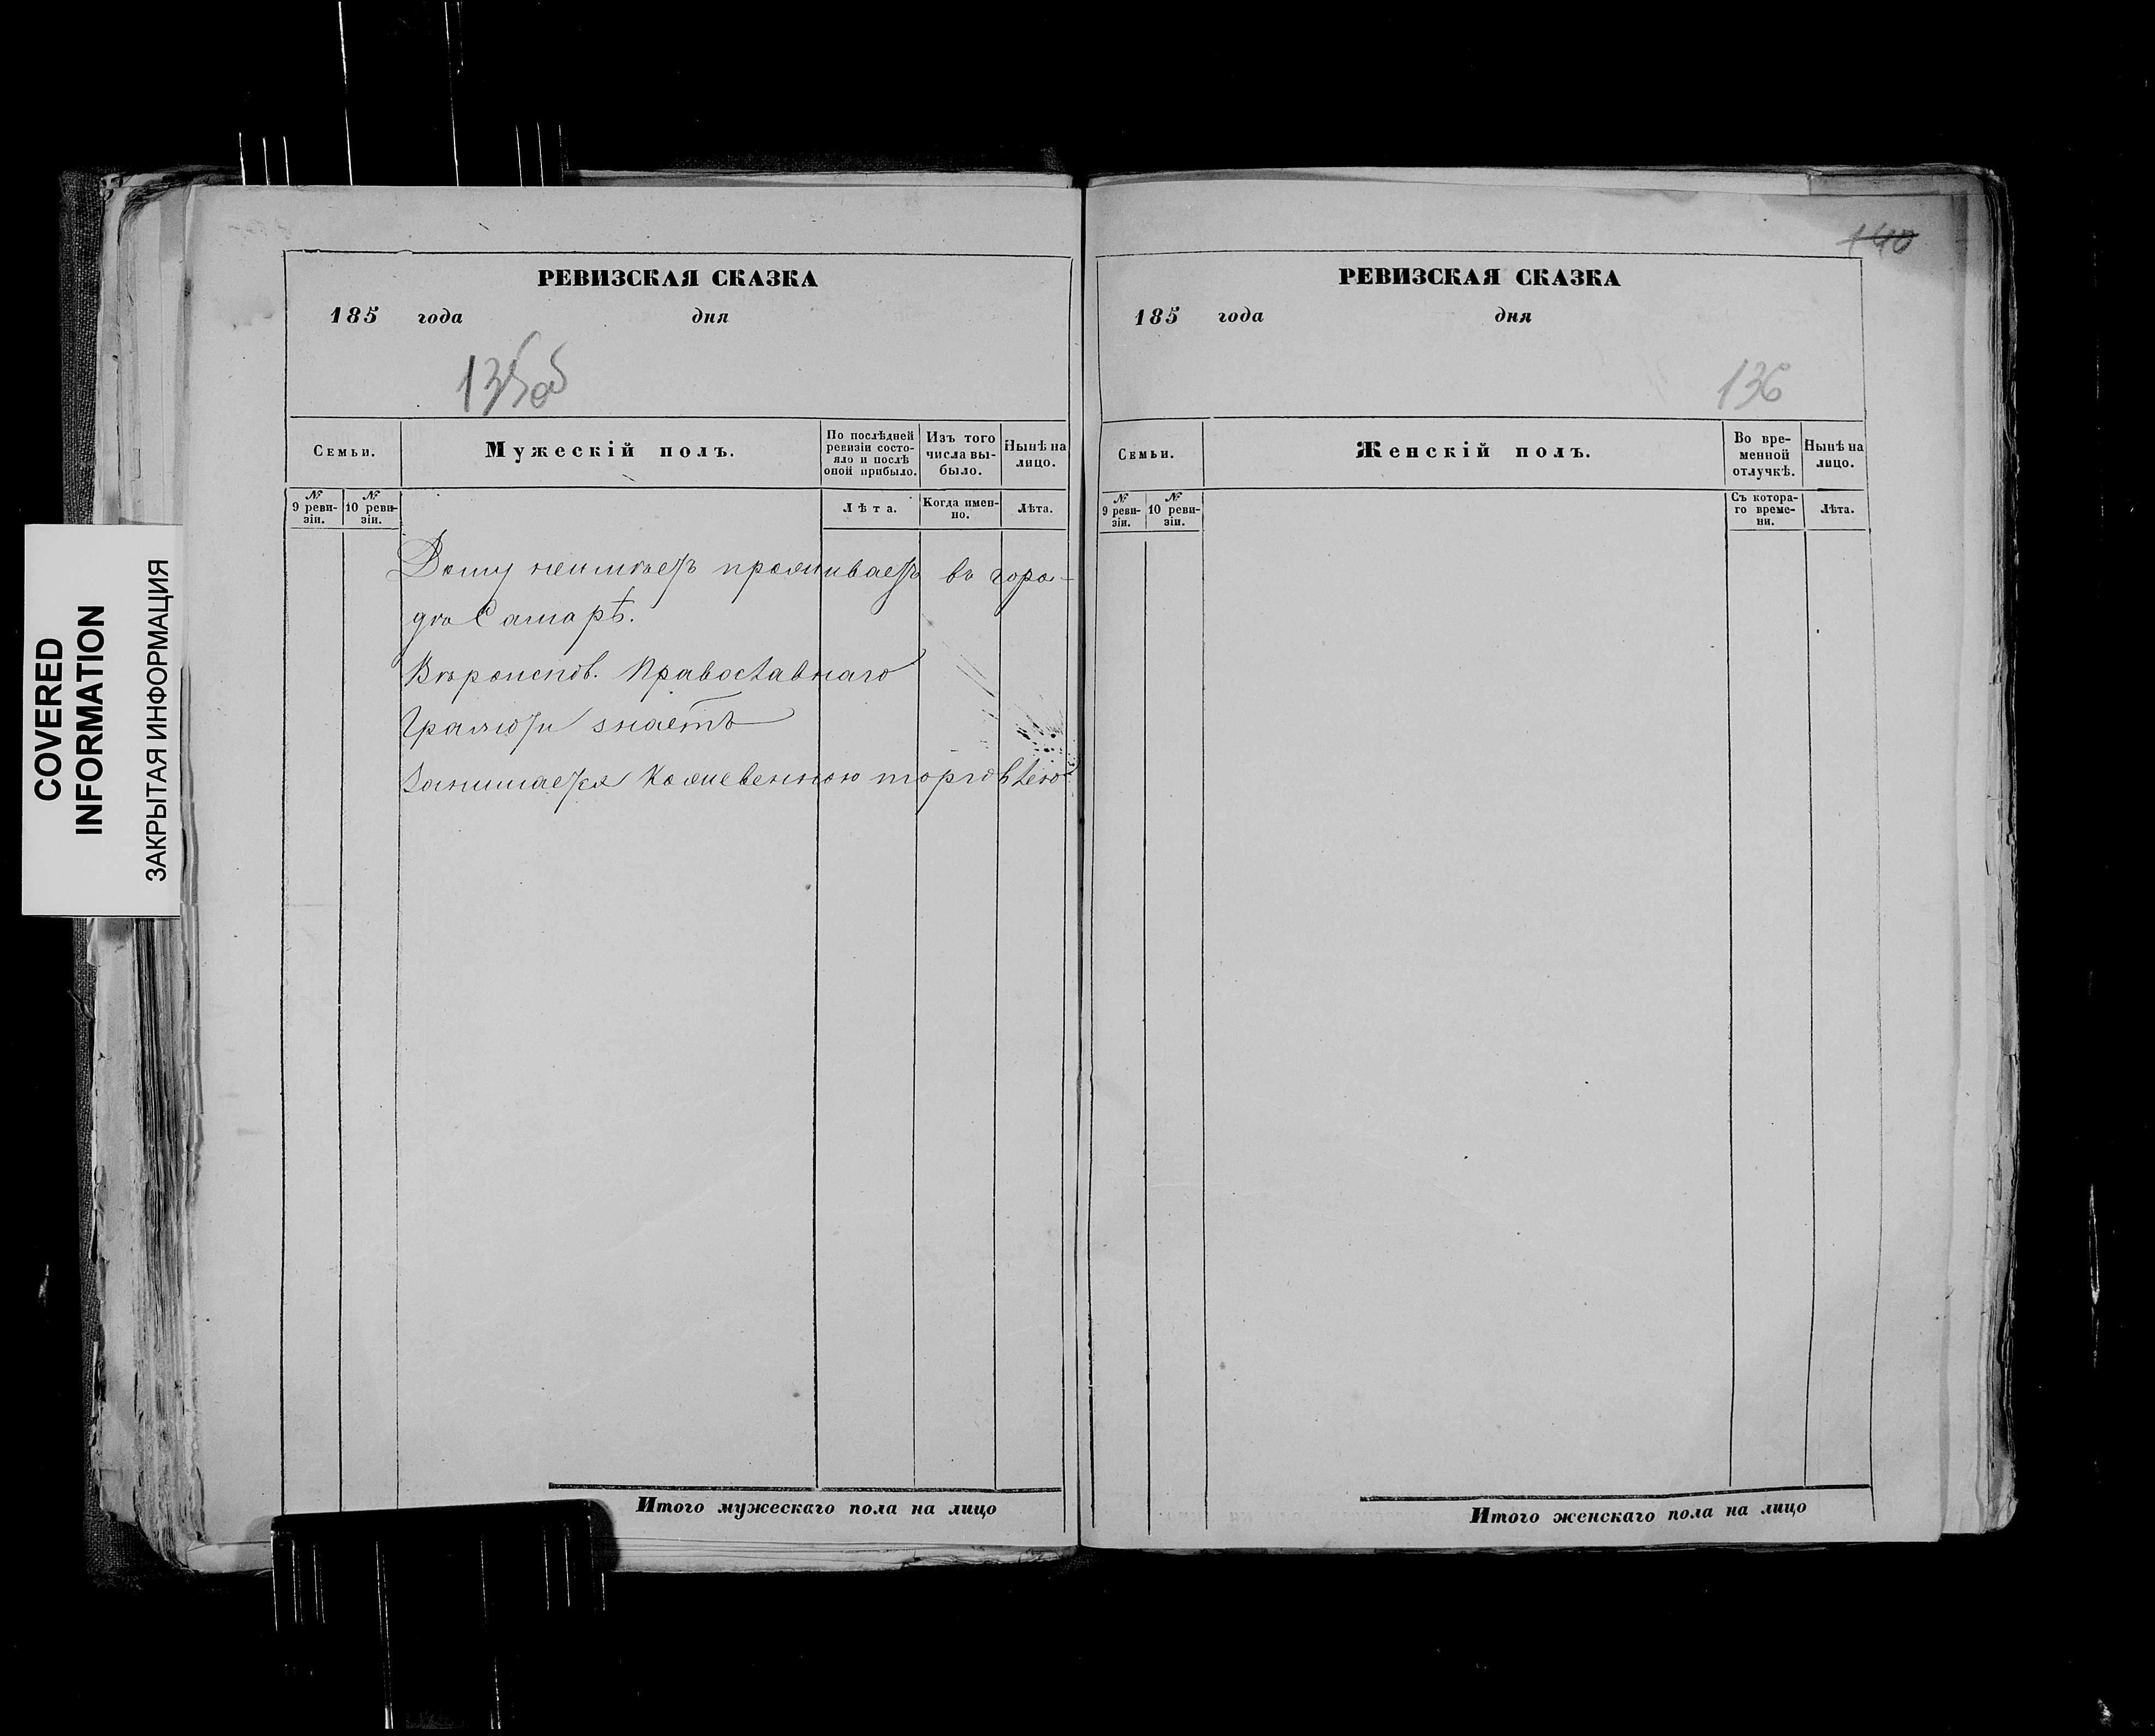 COVERED
INFORMATION
ЗАКРЫТАЯ ИНФОРМАЦИЯ
РЕВИЗСКАЯ СКАЗКА
185 года дня
Семьи.
Мужескій полъ.
По послѣдней ревизіи состо-
яло и послѣ
оной прибыло.
Изъ того
числа вы-
было.
Нынѣ на
лицо.
№
9 реви-
зіи.
№
10 реви-
зіи.
Лѣта.
Когда имен-
но.
Лѣта.
Дому неимѣетъ проживаетъ въ горо-
дѣ Самарѣ.
Вѣроиспов. Православнаго
Грамоти знаетъ
Занимается Кожевенною торговлею
Итого мужескаго пола на лицо
140
РЕВИЗСКАЯ СКАЗКА
185 года дня
136
Семьи.
Женскій полъ.
Во вре-
менной
отлучкѣ.
Нынѣ на
лицо.
№
9 реви-
зіи.
№
10 реви-
зіи.
Съ котора-
го време-
ни.
Лѣта.
Итого женскаго пола на лицо